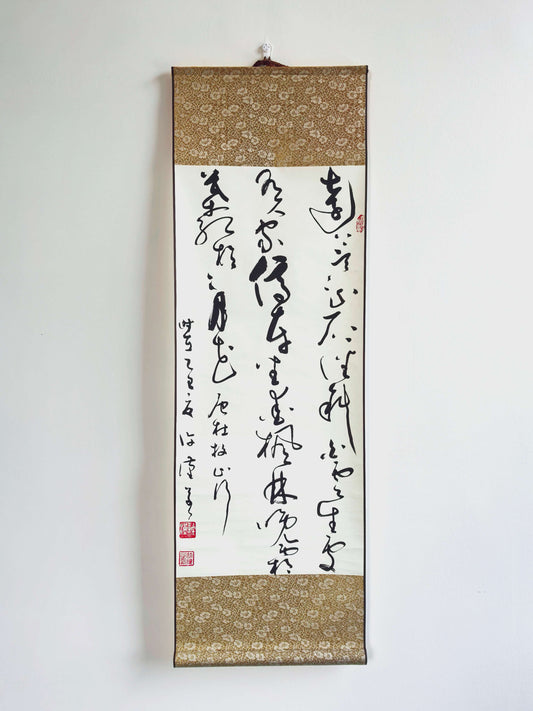 遠上寒山石徑斜白雲生處
有人家停車坐愛楓林晚霜
葉紅於二月花唐杜牧山行
乙丑夏